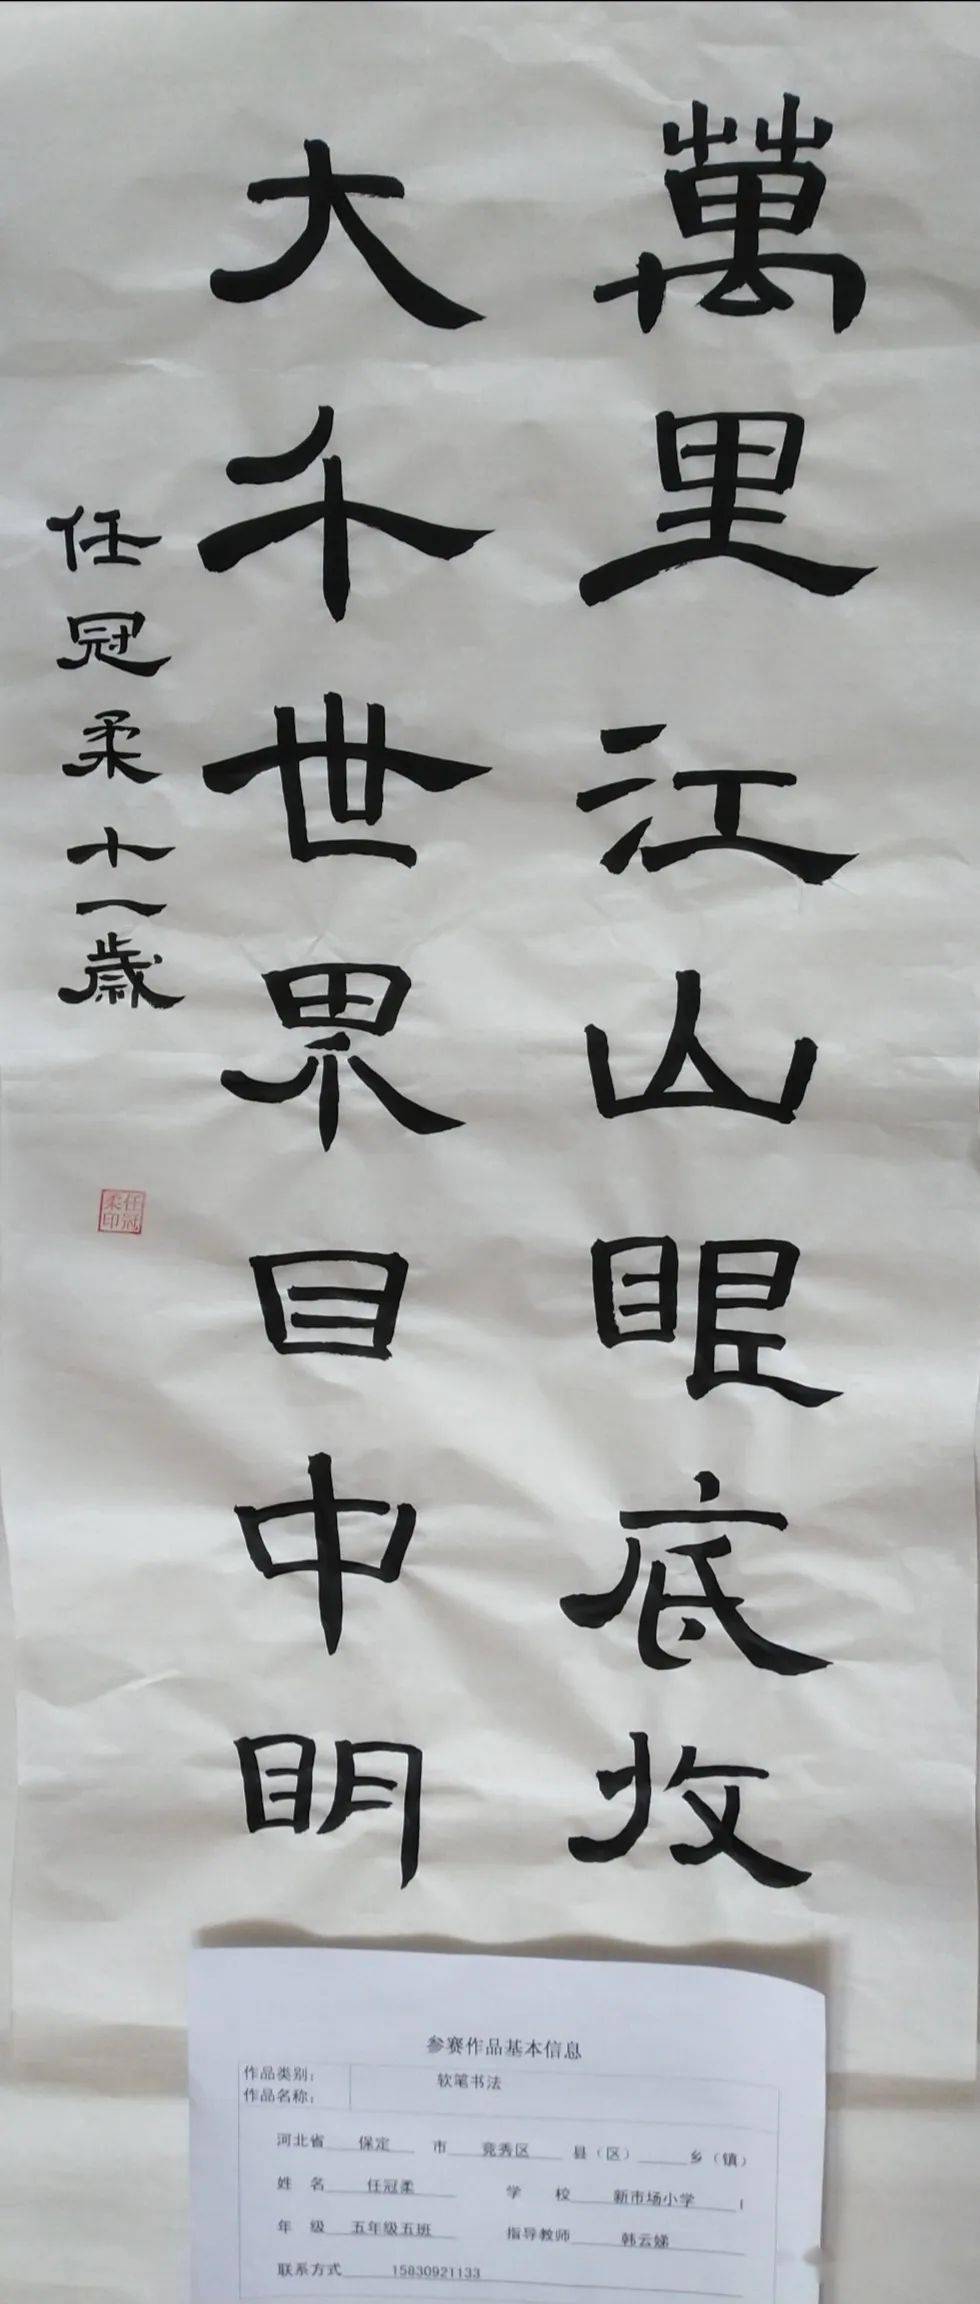 萬里江山眼底收
大千世界目中明
任冠柔十一歲
任冠柔印
参赛作品基本信息
作品类别： 软笔书法
作品名称：
河北省 保定 市 竞秀区 县（区） 乡（镇）
姓 名 任冠柔 学 校 新市场小学
年 级 五年级五班 指导教师 韩云娣
联系方式 15830921133